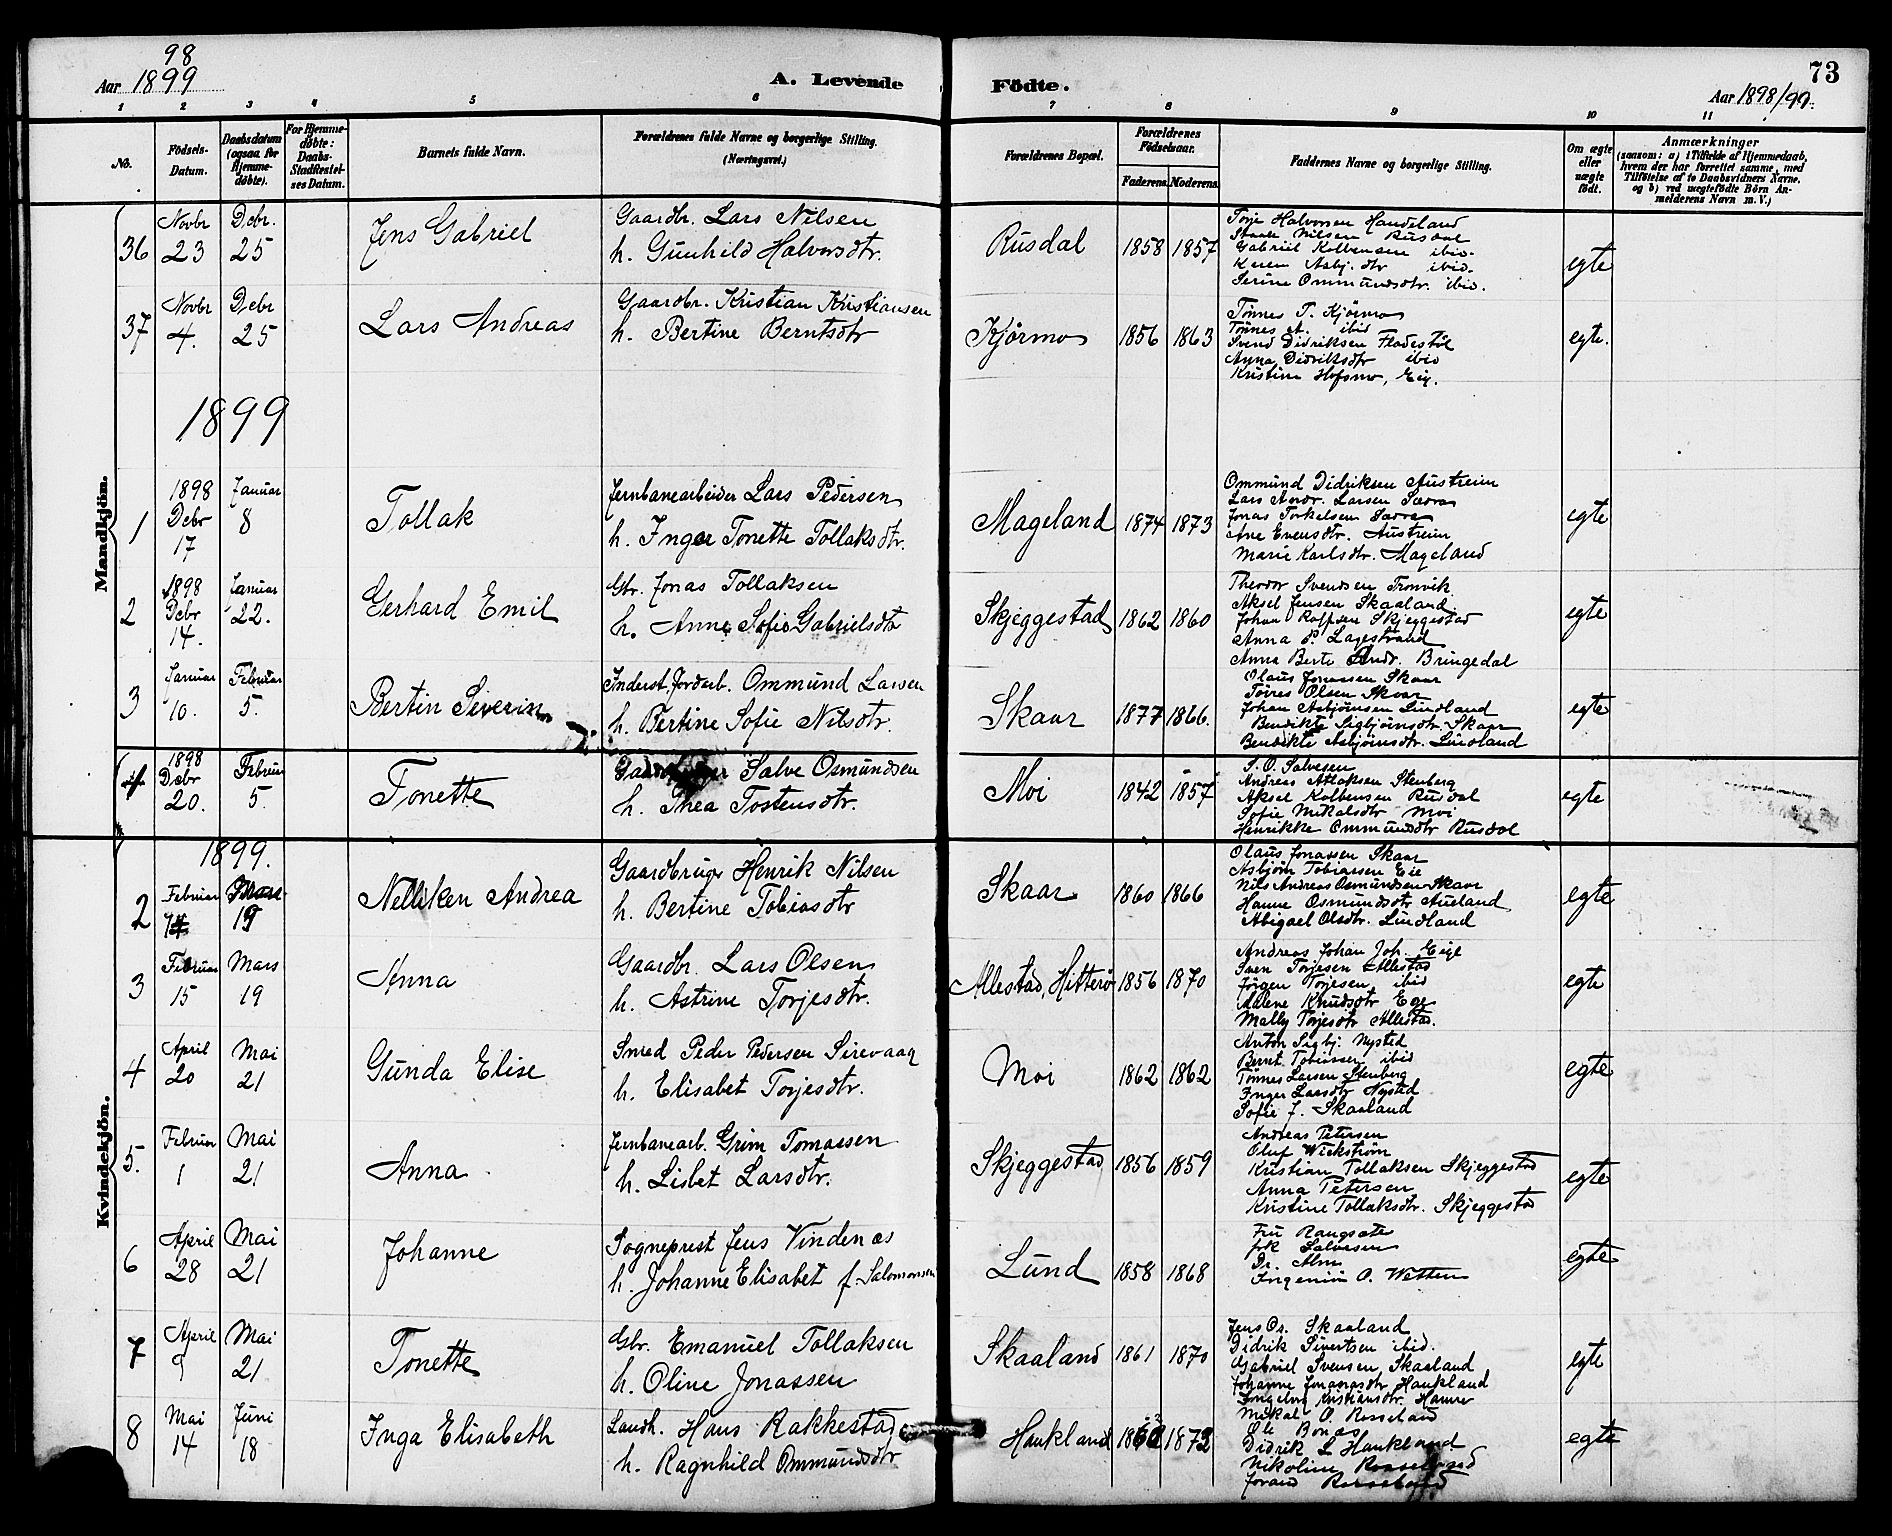 98
Aar 1899
A. Levende
Födte.
73
Aar 1898/99.
1 2 3 4 5 6 7 8 9 10 11
No.
Födsels-Datum.
Daabsdatum (ogsaa for Hjemme-döbte).
For Hjemme-döbte: Daabs-Stadfæstel-ses Datum.
Barnets fulde Navn.
Forældrenes fulde Navne og borgerlige Stilling.
(Næringsvei.)
Forældrenes Bopæl.
Forældrenes Födselsaar.
Faderens. Moderens.
Faddernes Navne og borgerlige Stilling.
Om ægte eller uægte födt.
Anmærkninger
(saasom: a) i Tilfælde af Hjemmedaab, hvem der har forrettet samme, med Tilföielse af to Daabsvidners Navne, og b) ved uægtefödte Börn An-melderens Navn m. V.)
Mandkjön.
36 Novbr 23 Debr. 25 Jens Gabriel
Gaardbr. Lars Nilsen
h. Gunhild Halvorsdtr.
Rusdal 1858 1857
Torje Halvorsen Haudeland
Staale Nilsen Rusdal
Gabriel Kolbensen ibid.
Karen Asbj. dtr ibid.
Serine Ommundsdtr. ibid.
egte
37 Novbr 4. Debr 25 Lars Andreas
Gaardbr. Kristian Kristiansen
h. Bertine Berntsdtr
Kjørmo 1856 1863
Tønnes T. Kjørmo
Tønnes ibid
Svend Didriksen Fladestøl
Anna Didriksdtr ibid
Kristine Hofsmo, Eig.
egte.
1899
1 1898 Debr 17 Januar 8 Tollak
Jernbanearbeider Lars Pedersen
h. Inger Tonette Tollaksdtr.
Mageland 1874 1873
Ommund Didriksen Austreim
Lars Andr. Larsen Sævra
Jonas Torkelsen Sævra
Ane Evensdtr. Austreim
Marie Karlsdtr. Mageland
egte
2 1898 Debr 14. Januar 22. Gerhard Emil
Gbr. Jonas Tollaksen
h. Anne Sofie Gabrielsdtr
Skjeggestad 1862 1860
Theodor Svendsen Tronvik
Aksel Jensen Skaaland
Johan Roffsen Skjeggestad
Anna P. Lagestrand
Anna Berte Andr. Bringedal
egte
3 Januar 10. Februar 5. Bertin Severin
Inderst. Jordarb. Ommund Larsen
h. Bertine Sofie Nilsdtr.
Skaar 1877 1866.
Olaus Jonassen Skaar
Toires Olsen Skaar
Johan Asbjørnsen Lindland
Bendikte Sigbjørnsdtr. Skaar
Bendikte Asbjørnsdtr. Lindland
egte
1898 Debr 20. Februar 5. Tonette
Gaardbruger Salve Osmundsen
h. Thea Tostensdtr.
Moi 1842 1857
S. O. Salvesen
Andreas Atlaksen Stenberg
Aksel Kolbensen Rusdal
Sofie Mikalsdtr Moi
Henrikke Ommundsdtr Rusdal
egte
Kvindekjön.
1899.
2 Februar 14 Mars 19 Nelliken Andrea
Gaardbruger Henrik Nilsen
h. Bertine Tobiasdtr
Skaar 1860 1866
Olaus Jonassen Skaar
Asbjørn Tobiassen Eie
Nils Andreas Osmundsen Skaar
Hanne Osmundsdtr Ausland
Abigael Olsdtr. Lindland
egte
3 Februar 15 Mars 19 Anna
Gaardbr. Lars Olsen
h. Astrine Torjesdtr.
Allestad, Hitterø 1856 1870
Andreas Johan Joh. Eige
Sven Torjesen Allestad
Jørgen Torjesen ibid
Malene Knudsdtr Ege
Mally Torjesdtr Allestad.
egte
4 April 20 Mai 21 Gunda Elise
Smed Peder Pedersen Sirevaag
h. Elisabet Torjesdtr.
Moi 1862 1862
Anton Sigbj. Nysted
Bernt Tobiassen ibid
Tønnes Larsen Stenberg
Inger Larsdtr Nysted
Sofie J. Skaaland
egte
5. Februar 1 Mai 21 Anna
Jernbanearb. Grim Tomassen
h. Lisbet Larsdtr.
Skjeggestad 1856 1859
Andreas Petersen
Oluf Wickstrøm
Kristian Tollaksen Skjeggestad
Anna Petersen
Kristine Tollaksdtr. Skjeggestad
egte
6 April 28 Mai 21 Johanne
Sogneprest Jens Vindenæs
h. Johanne Elisabet f. Salomonsen
Lund 1858 1868
Fru Raugsater
frk Salvesen
Dr. Alm
Ingeniør O. Wetten
egte
7 April 9 Mai 21 Tonette
Gbr. Emanuel Tollaksen
h. Oline Jonassen
Skaaland 1861 1870
Jens Os. Skaaland
Didrik Sivertsen ibid.
Gabriel Svensen Skaaland
Johanne Jonasdtr Haukland
Ingeborg Kristiansdtr. Hamre
egte
8 Mai 14 Juni 18 Inga Elisabeth
Landh. Hans Rakkestad
h. Ragnhild Ommundsdtr
Haukland 1862 1872
Mikal O. Rosseland
Ole Bonas
Didrik L Haukland
Nikoline Rosseland
Jorand Rosseland
egte